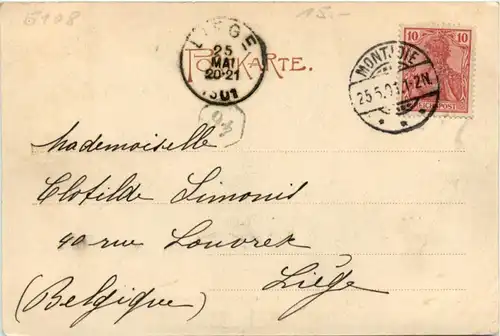 5408
15.-
LIÉGE
25
MAI
20-21
1901
POSTKARTE.
MONTJOIE
25.5.01.1-2N.
10 10
REICHSPOST
94
Mademoiselle
Clotilde Simonis
40 rue Louvrex
Liège
(Belgique)